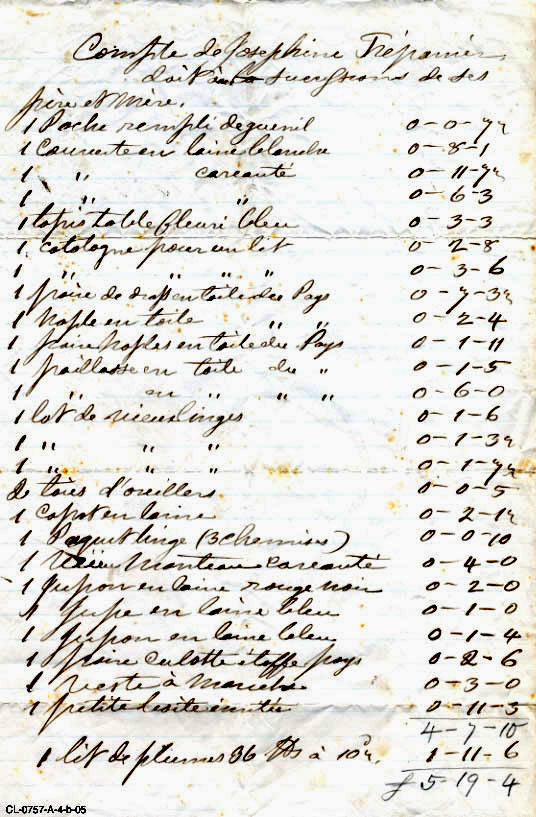 Compte de Josephine Trépanier
doit à la successions de ses
père et mère.
1 Poche rempli deguenil 0-0-7½
1 Couverte en laine blanche 0-8-1
1 " careauté 0-11-7½
1 " " 0-6-3
1 tapis table fleuri bleu 0-3-3
1 catalogne pour un lit 0-2-8
1 " " " " 0-3-6
1 paire de drap en toile du Pays 0-7-3½
1 Naple en toile " " 0-2-4
1 paire Naples en toile du Pays 0-1-11
1 paillasse en toile du " 0-1-5
1 " en " " " 0-6-0
1 lot de vieux linges 0-1-6
1 " " " 0-1-3½
1 " " " 0-1-7½
2 taies d'oreillers 0-0-5
1 capot en laine 0-2-1½
1 Paquet linge (3 chemises) 0-0-10
1 Vieux manteau careauté 0-4-0
1 Jupon en laine rouge noir 0-2-0
1 Jupe en laine bleu 0-1-0
1 Jupon en laine bleu 0-1-4
1 paire culotte étoffe pays 0-2-6
1 veste à manche 0-3-0
1 petite 0-11-3
4-7-10
1 lit de plumes 36 lbs à 10½d. 1-11-6
£ 5-19-4
CL-0757-A-4-b-05